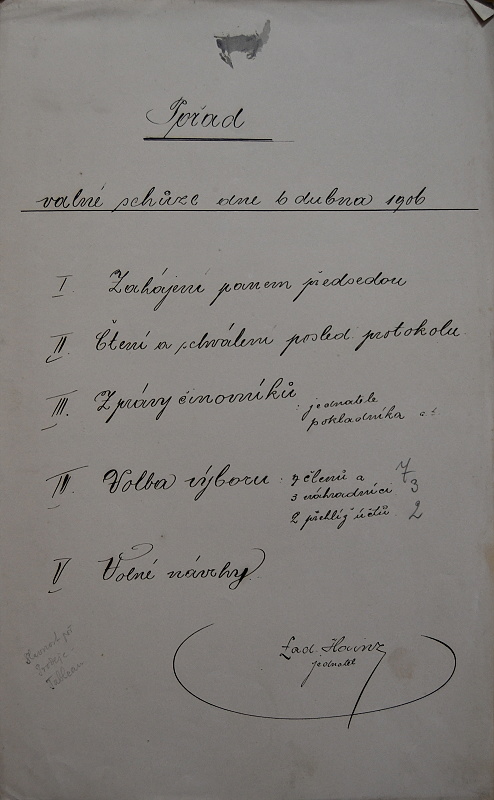 Pořad
valné schůze dne 6 dubna 1906
I. Zahájení panem předsedou
II. Čtení a schválení posled. protokolu
III. Zprávy činovníků : jednatele
pokladníka
IV. Volba výboru : 7 členů a 7
3 náhradníci 3
2 přehlíž. účtů. 2
V Volné návrhy.
Lad. Hainz
jednatel
Tableau